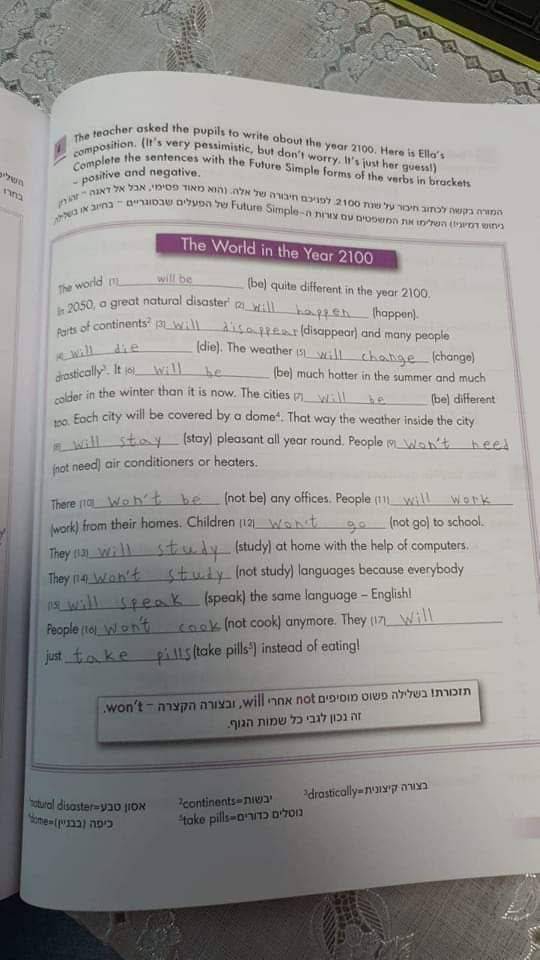 The teacher asked the pupils to write about the year 2100. Here is Ella's
composition. (It's very pessimistic, but don't worry. It's just her guess!)
Complete the sentences with the Future Simple forms of the verbs in brackets
– positive and negative.
המורה בקשה לכתוב חיבור על שנת 2100. לפניכם חיבורה של אלה. (הוא מאוד פסימי, אבל אל דאגה – זהו רק
ניחוש דמיוני!) השלימו את המשפטים עם צורות ה-Future Simple של הפעלים שבסוגריים – בחיוב או בשלילה
The World in the Year 2100
The world (1) will be (be) quite different in the year 2100.
In 2050, a great natural disaster¹ (2) will happen (happen).
Parts of continents² (3) will disappear (disappear) and many people
(4) will die (die). The weather (5) will change (change)
drastically³. It (6) will be (be) much hotter in the summer and much
colder in the winter than it is now. The cities (7) will be (be) different
too. Each city will be covered by a dome⁴. That way the weather inside the city
(8) will stay (stay) pleasant all year round. People (9) won't need
(not need) air conditioners or heaters.
There (10) won't be (not be) any offices. People (11) will work
(work) from their homes. Children (12) won't go (not go) to school.
They (13) will study (study) at home with the help of computers.
They (14) won't study (not study) languages because everybody
(15) will speak (speak) the same language – English!
People (16) won't cook (not cook) anymore. They (17) will
just take pills (take pills⁵) instead of eating!
תזכורת! בשלילה פשוט מוסיפים not אחרי will, ובצורה הקצרה – won't.
זה נכון לגבי כל שמות הגוף.
¹natural disaster=אסון טבע ²continents=יבשות ³drastically=בצורה קיצונית
⁴dome=כיפה (בבניין) ⁵take pills=נוטלים כדורים